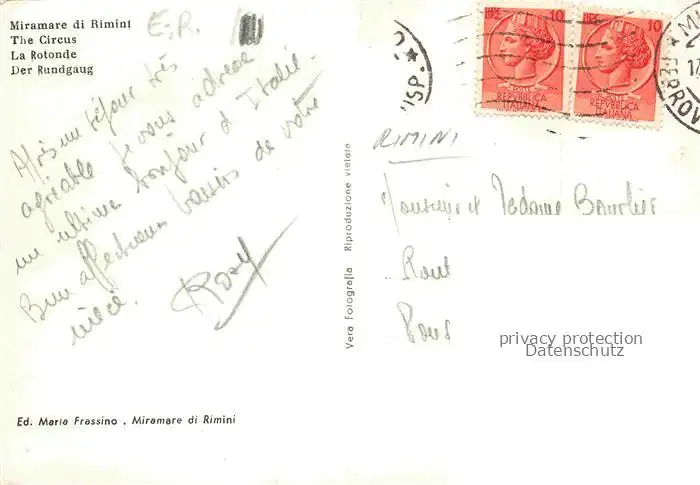 Miramare di Rimini
The Circus
La Rotonde
Der Rundgaug
E.R.
Après un séjour très
agréable je vous adresse
un ultime bonjour d'Italie.
Bien affectueux baisers de votre
nièce.
Rosy
Ed. Maria Frassino . Miramare di Rimini
Vera Fotografia Riproduzione vietata
LIRE 10
POSTE
REPVBBLICA
ITALIANA
10
POSTE
REPVBBLICA
ITALIANA
RIMINI
Monsieur et Madame
privacy protection
Datenschutz